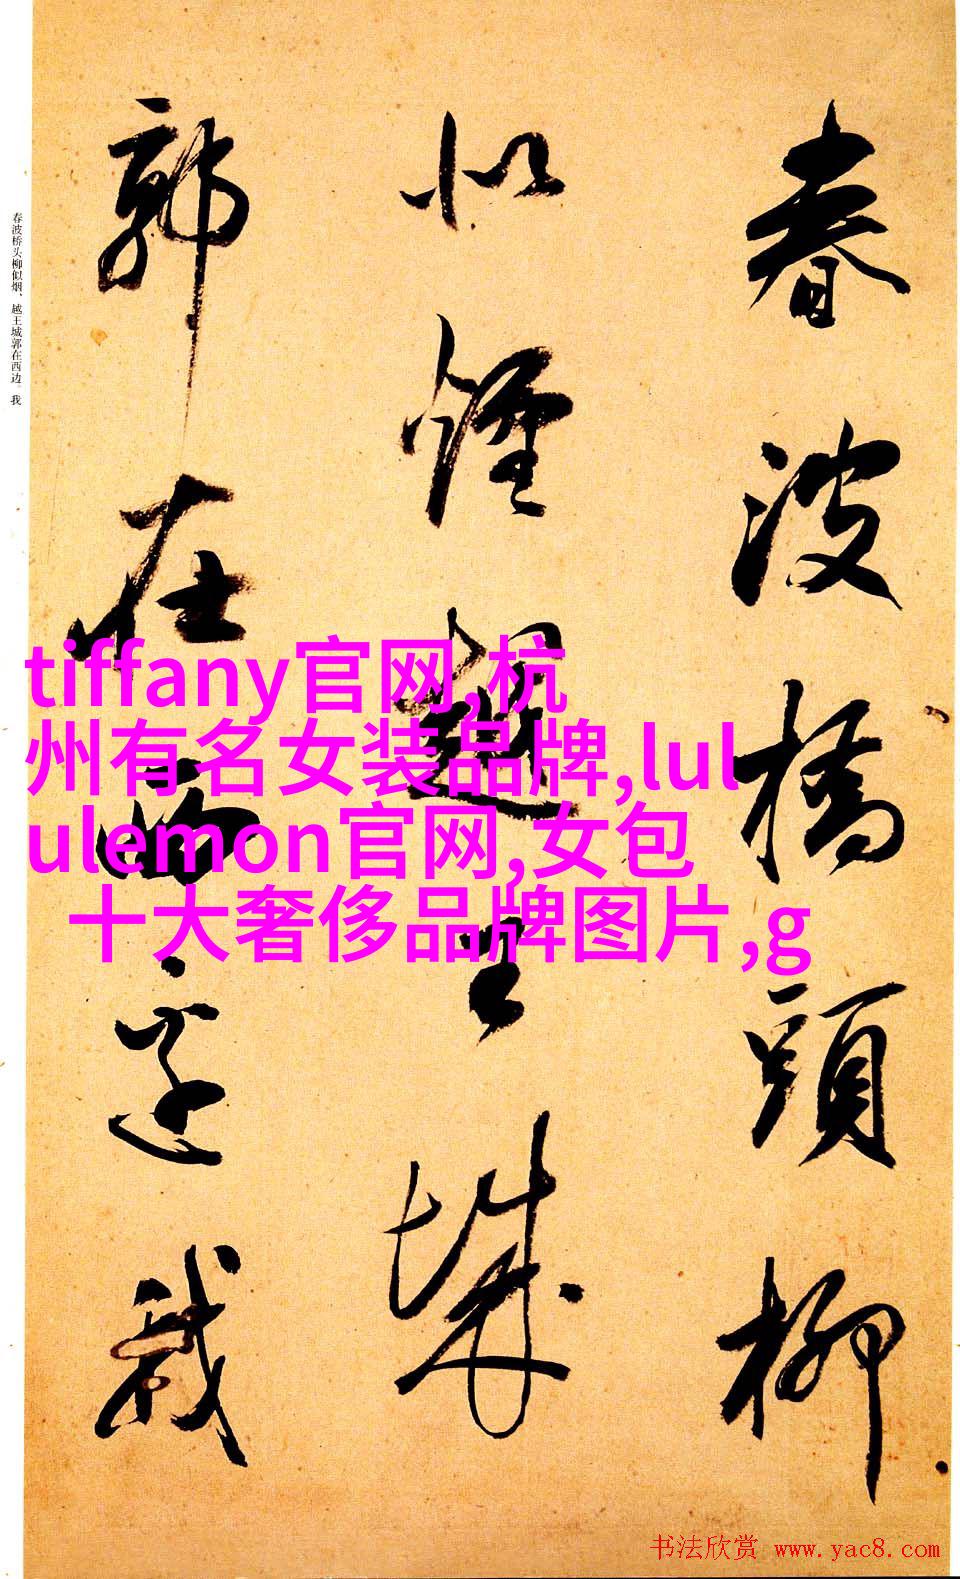 春波橋頭柳
似煙越王城
郭在西邊我
春波桥头柳似烟、越王城郭在西边。我
tiffany官网,杭
州有名女装品牌,lul
ulemon官网,女包
十大奢侈品牌图片,g
书法欣赏 www.yac8.com